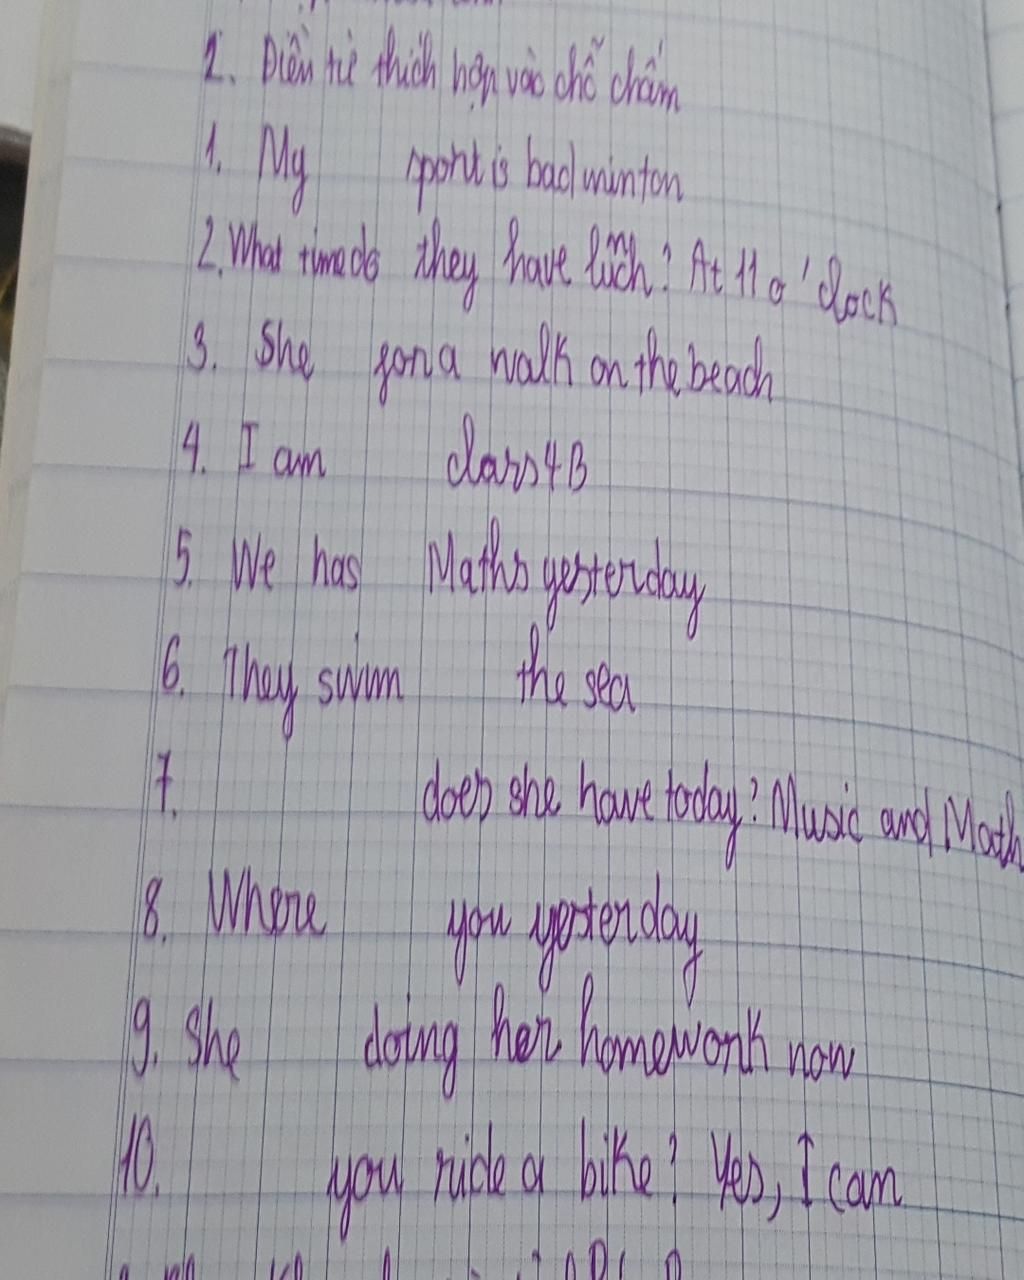 2. Điền từ thích hợp vào chỗ chấm
1. My sport is badminton
2. What time do they have lưnch? At 11 o'clock
3. She for a walk on the beach
4. I am class 4B
5. We has Maths yesterday
6. They swim the sea
7. does she have today? Music and Math
8. Where you yesterday
9. She doing her homework now
10. you ride a bike? Yes, I can